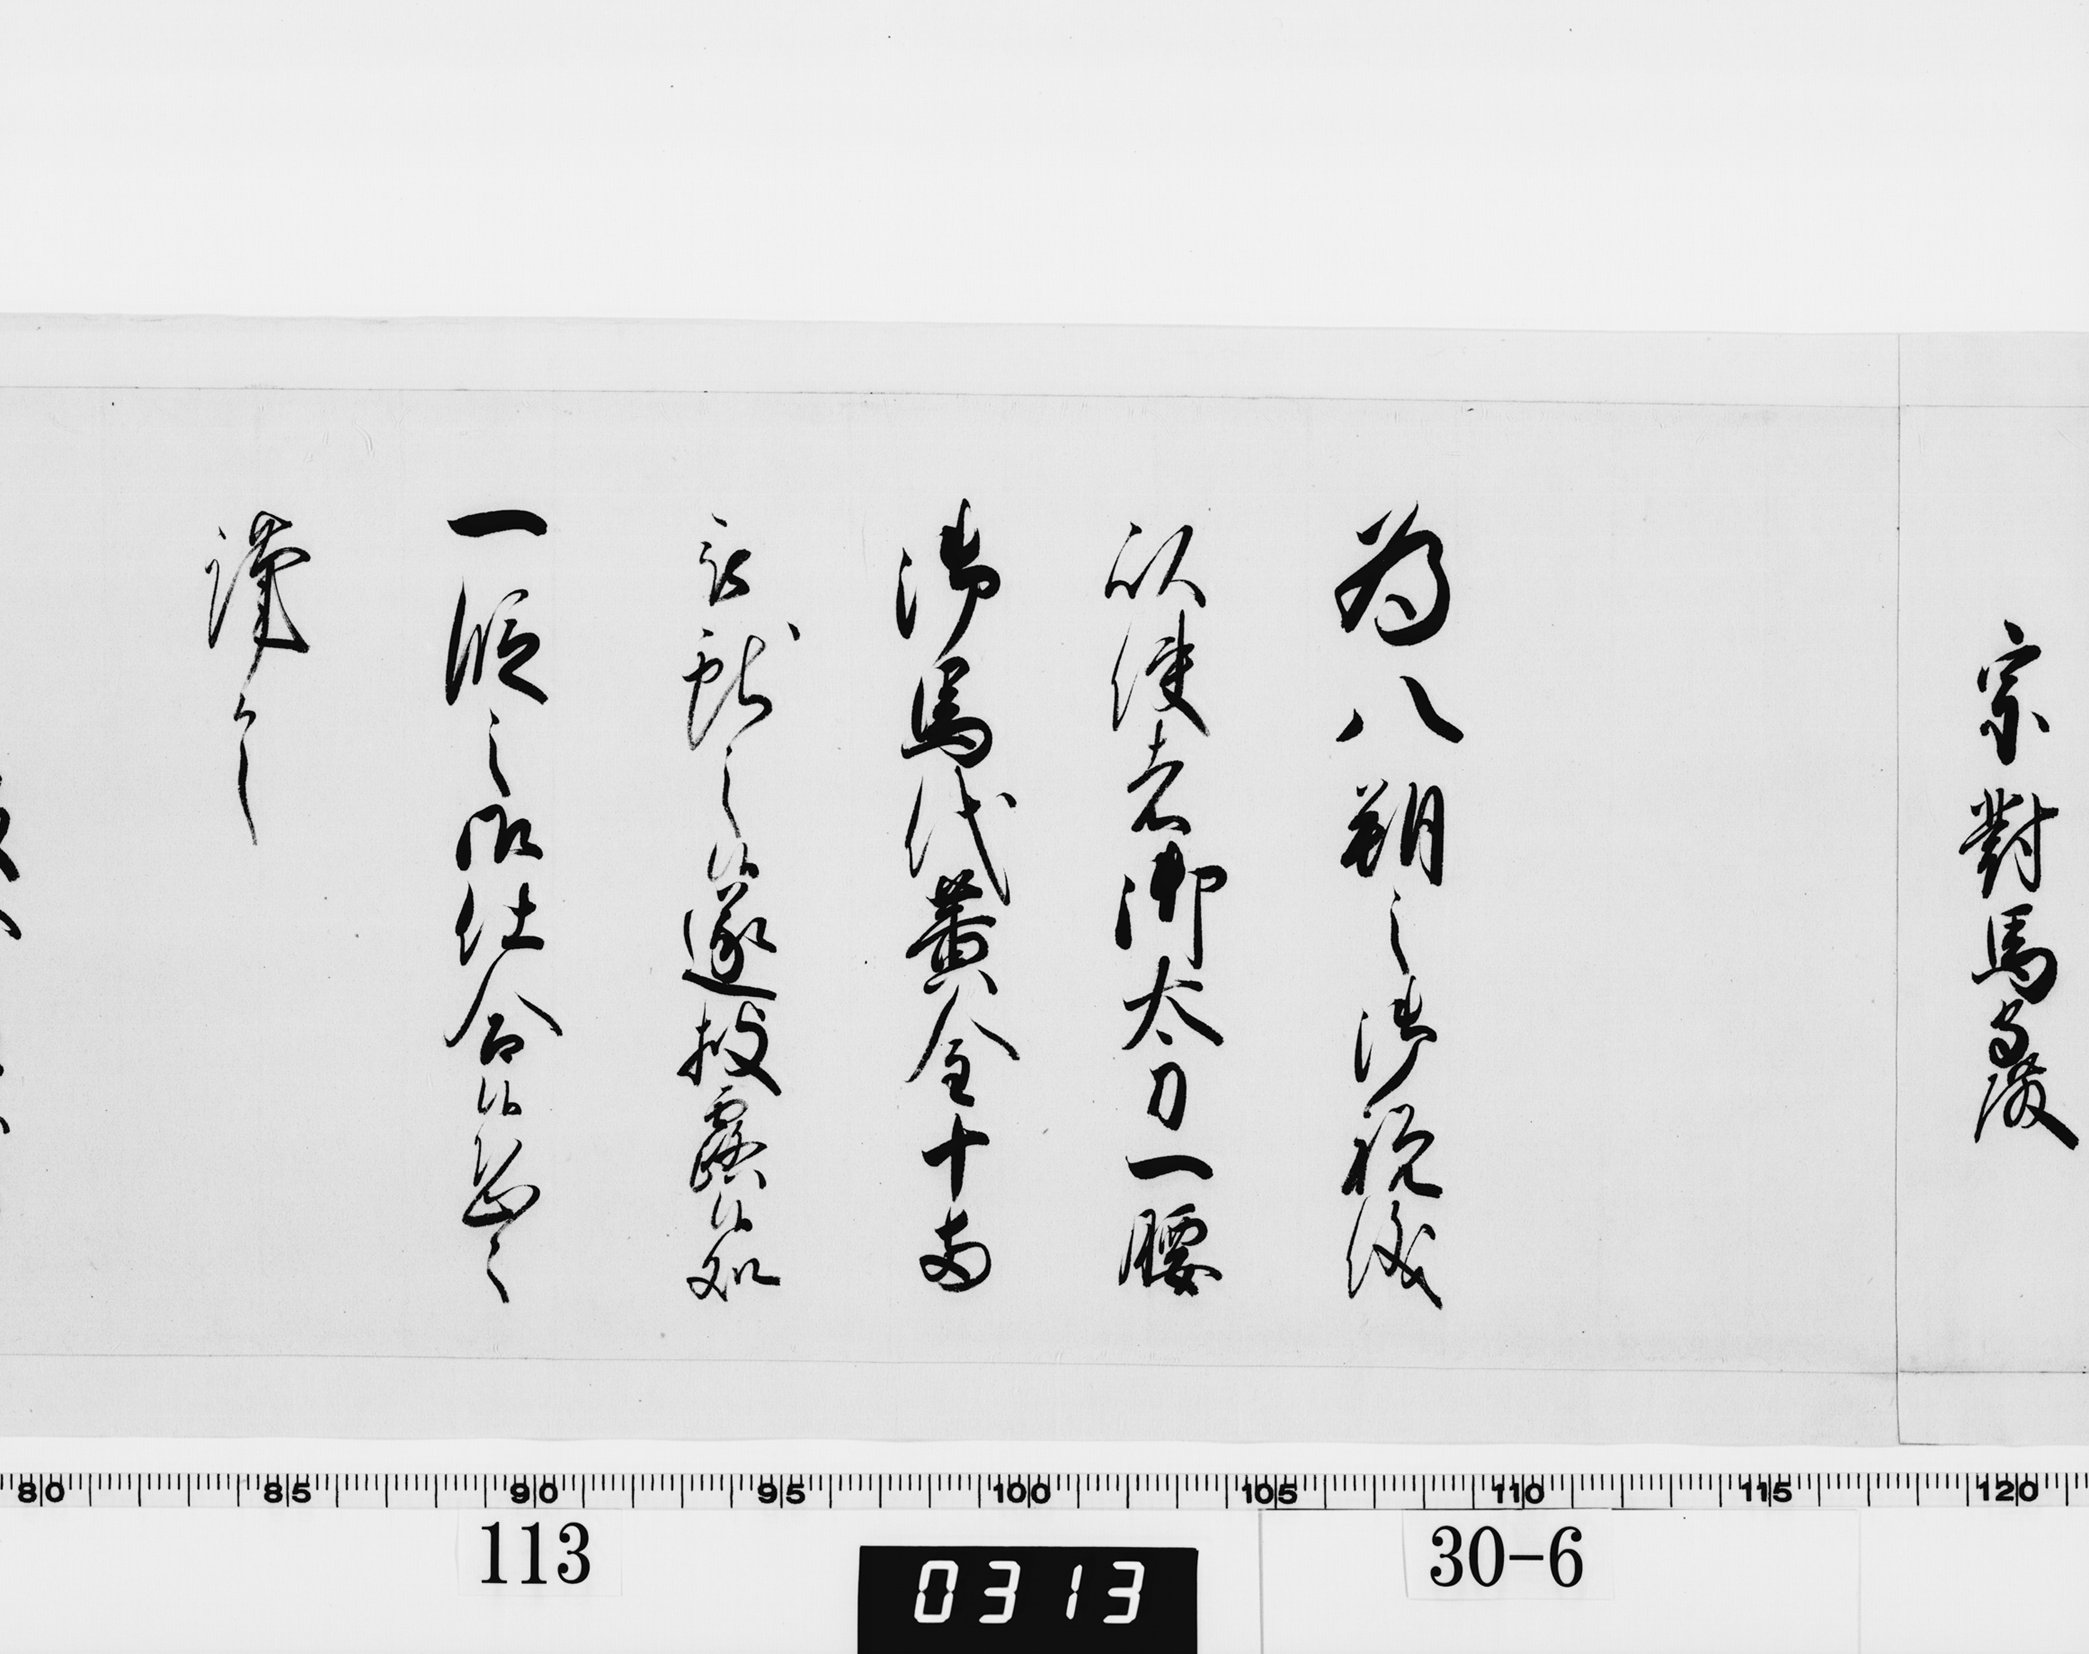 宗對馬守殿
為八朔之御祝儀
以使者御太刀一腰
御馬代黄金十両
被献之候遂披露候処
一段之御仕合候恐々
謹言
80 85 90 95 100 105 110 115 120
113
0313
30-6